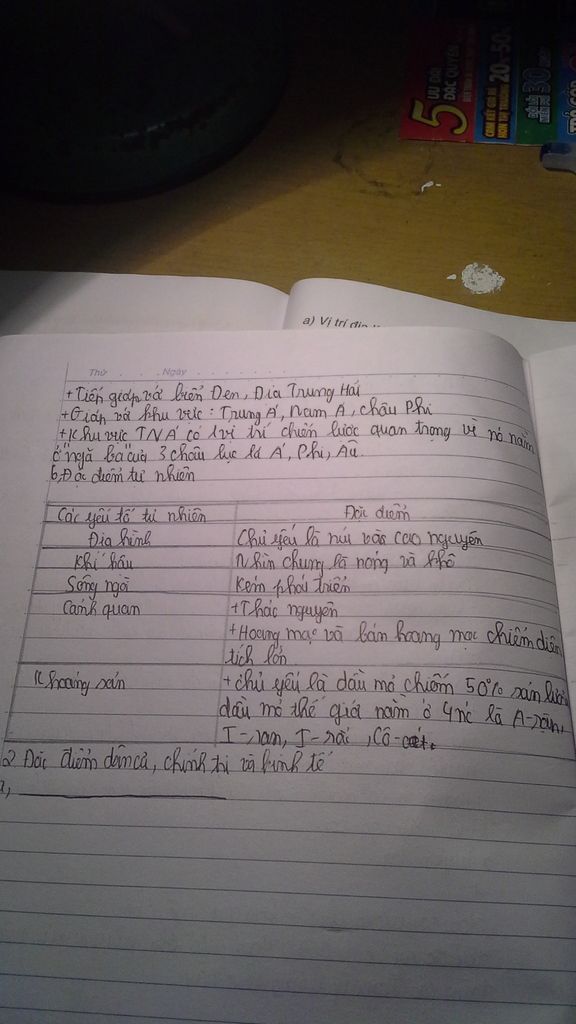 5 ƯU ĐÃI
ĐẶC QUYỀN
CAM KẾT GIÁ RẺ
HƠN THỊ TRƯỜNG 20%-50%
30
a) Vị trí địa
Thứ Ngày
+ Tiếp giáp với biển Đen, Địa Trung Hải
+ Giáp với khu vực: Trung Á, Nam Á, châu Phi
+ Khu vực TNÁ có vị trí chiến lược quan trọng vì nó nằm
ở "ngã ba" của 3 châu lục là Á, Phi, Âu.
b, Đặc điểm tự nhiên
Các yếu tố tự nhiên Đặc điểm
Địa hình Chủ yếu là núi và cao nguyên
Khí hậu Nhìn chung là nóng và khô
Sông ngòi Kém phát triển
Cảnh quan + Thảo nguyên
+ Hoang mạc và bán hoang mạc chiếm diện
tích lớn
Khoáng sản + chủ yếu là dầu mỏ chiếm 50% sản lượng
dầu mỏ thế giới nằm ở 4 nc là A-rập,
I-ran, I-rắc, Cô-oét.
2 Đặc điểm dân cư, chính trị và kinh tế
a,